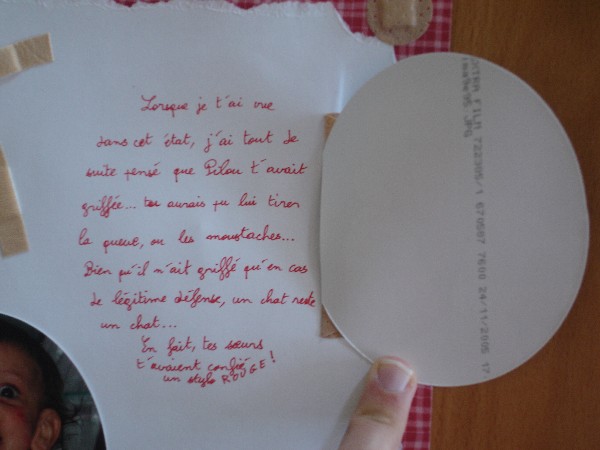 Lorsque je t'ai vue
dans cet état, j'ai tout de
suite pensé que Pilou t'avait
griffée... tu aurais pu lui tirer
la queue, ou les moustaches...
Bien qu'il n'ait griffé qu'en cas
de légitime défense, un chat reste
un chat...
En fait, tes sœurs
t'avaient confié
un stylo ROUGE!
EXTRA FILM 722305/1 670507 7600 24/11/2005 17